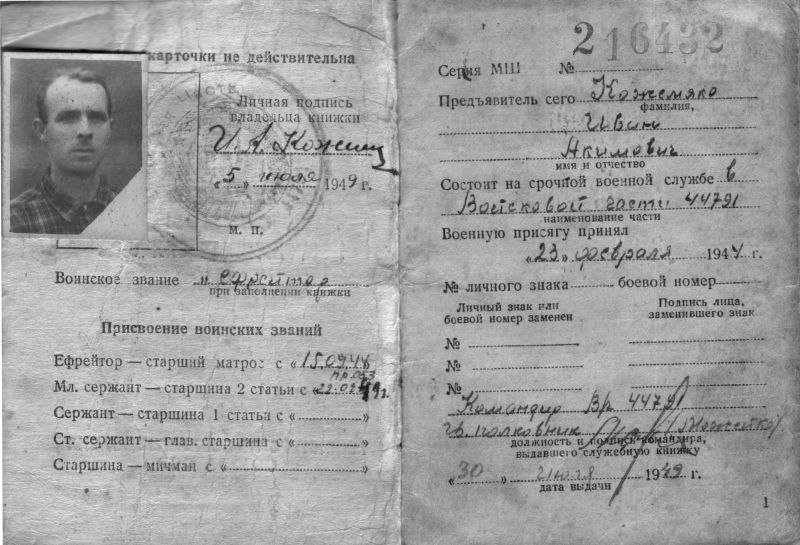 карточки не действительна
Личная подпись
владельца книжки
И. А. Кожемяк
«5» июля 1949 г.
м. п.
Воинское звание „Ефрейтор
при заполнении книжки
Присвоение воинских званий
Ефрейтор — старший матрос с «15.09.44
пр. 053
Мл. сержант — старшина 2 статьи с «22.02.49г.
Сержант — старшина 1 статьи с « »
Ст. сержант — глав. старшина с « »
Старшина — мичман с « »
216432
Серия МШ №
Предъявитель сего Кожемяко
фамилия,
Иван
Якимович
имя и отчество
Состоит на срочной военной службе в
Войсковой части 44791
наименование части
Военную присягу принял
«23» февраля 1944 г.
№ личного знака боевой номер
Личный знак или
боевой номер заменен
Подпись лица,
заменившего знак
№
№
№
Командир В/ч 44791
Гв. полковник
должность и подпись командира,
выдавшего служебную книжку
«30 » июля 1949 г.
дата выдачи
1